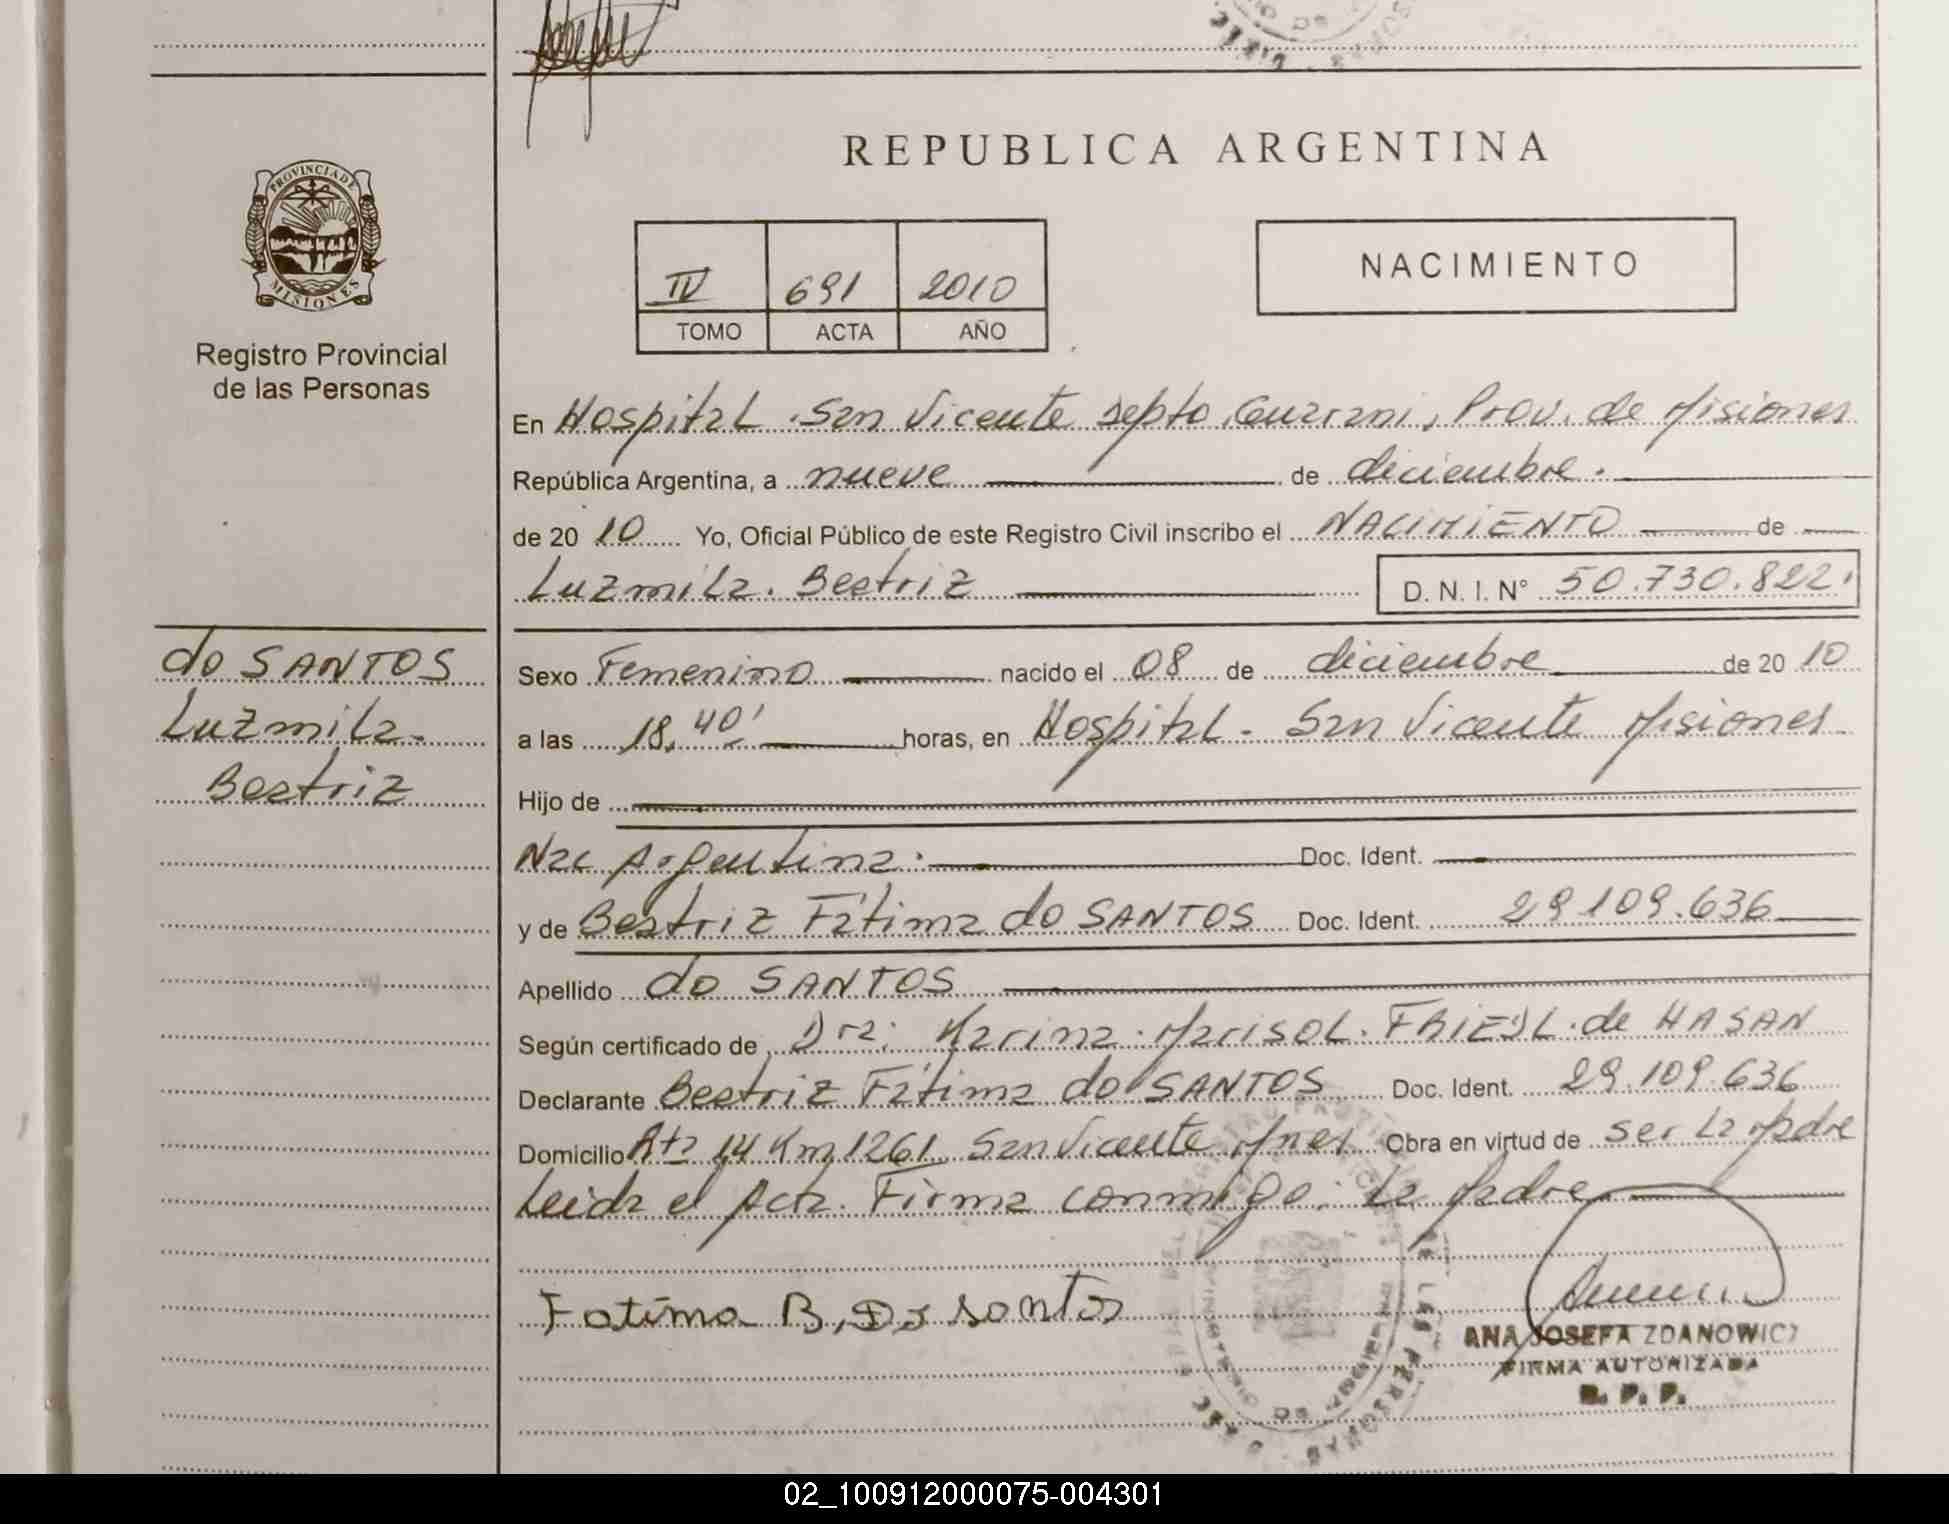 REPUBLICA ARGENTINA
PROVINCIA DE
MISIONES
Registro Provincial
de las Personas
IV 691 2010
TOMO ACTA AÑO
NACIMIENTO
En Hospital. San Vicente Depto. Guarani, Prov. de Misiones
República Argentina, a nueve de diciembre.
de 20 10 Yo, Oficial Público de este Registro Civil inscribo el NACIMIENTO de
Luzmila. Beatriz D. N. I. N° 50.730.822.
do SANTOS
Luzmila.
Beatriz
Sexo Femenino nacido el 08 de diciembre de 20 10
a las 18,40' horas, en Hospital - San Vicente Misiones
Hijo de
Nac Argentina. Doc. Ident.
y de Beatriz Fátima do SANTOS Doc. Ident. 29.109.636
Apellido do SANTOS
Según certificado de Dra: Marina. Marisol. de HASAN
Declarante Beatriz Fátima do SANTOS Doc. Ident. 29.109.636
Domicilio Rta 14 Km 1261 San Vicente Mnes Obra en virtud de ser la Madre
Leida el Acta. Firma conmigo: la Madre
Fatima B, Do santos
ANA JOSEFA ZDANOWICZ
FIRMA AUTORIZADA
R. P. P.
02_100912000075-004301